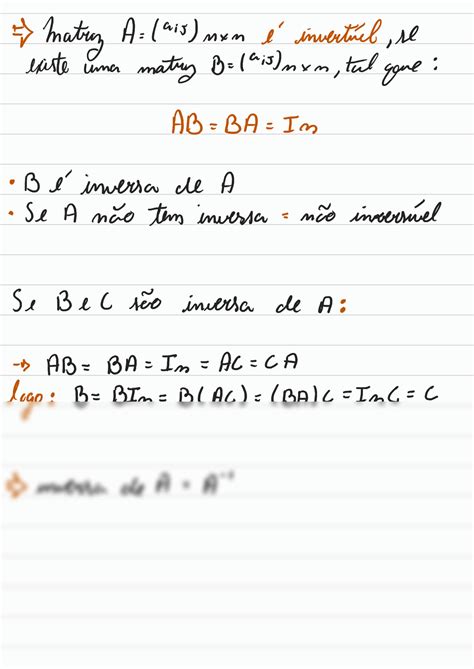 ⇒ Matriz A=(aij)nxn é invertível, se
existe uma matriz B=(aij)nxn, tal que:
AB=BA=In
• B é inversa de A
• Se A não tem inversa = não inversível
Se B e C são inversa de A:
→ AB= BA=In=AC=CA
logo: B= BIn= B(AC)=(BA)C=InC=C
⇒ inversa de A = A⁻¹